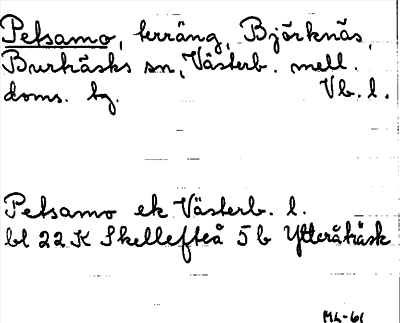 Petsamo, terräng, Björknäs,
Burträsks sn, Västerb. mell.
doms. bg. Vb. l.
Petsamo ek Västerb. l.
bl 22 K Skellefteå 5 b Ytterträsk
ML-61